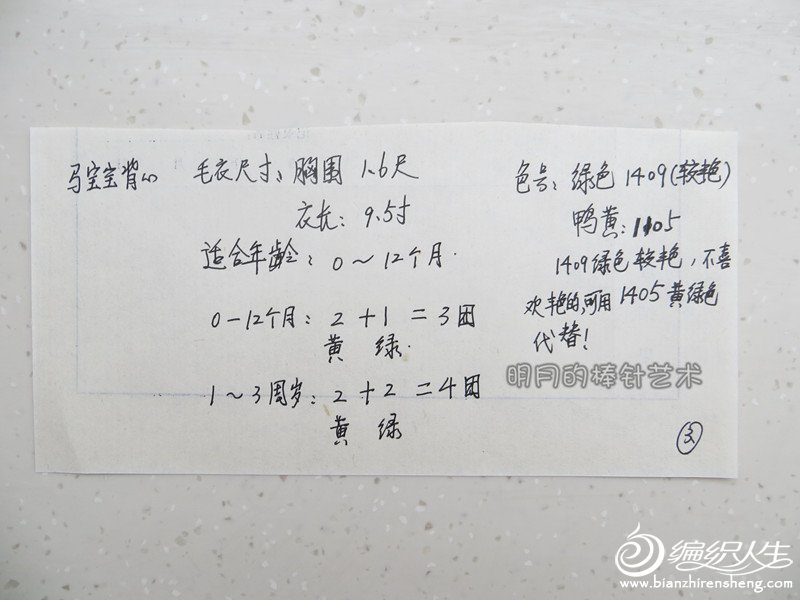 马宝宝背心
毛衣尺寸: 胸围 1.6尺
衣长: 9.5寸
适合年龄: 0～12个月.
0-12个月: 2+1=3团
黄 绿.
1～3周岁: 2+2=4团
黄 绿
色号: 绿色1409(较艳)
鸭黄: 1105
1409绿色较艳,不喜
欢艳的,可用1405黄绿色
代替!
明月的棒针艺术
编织人生
www.bianzhirensheng.com